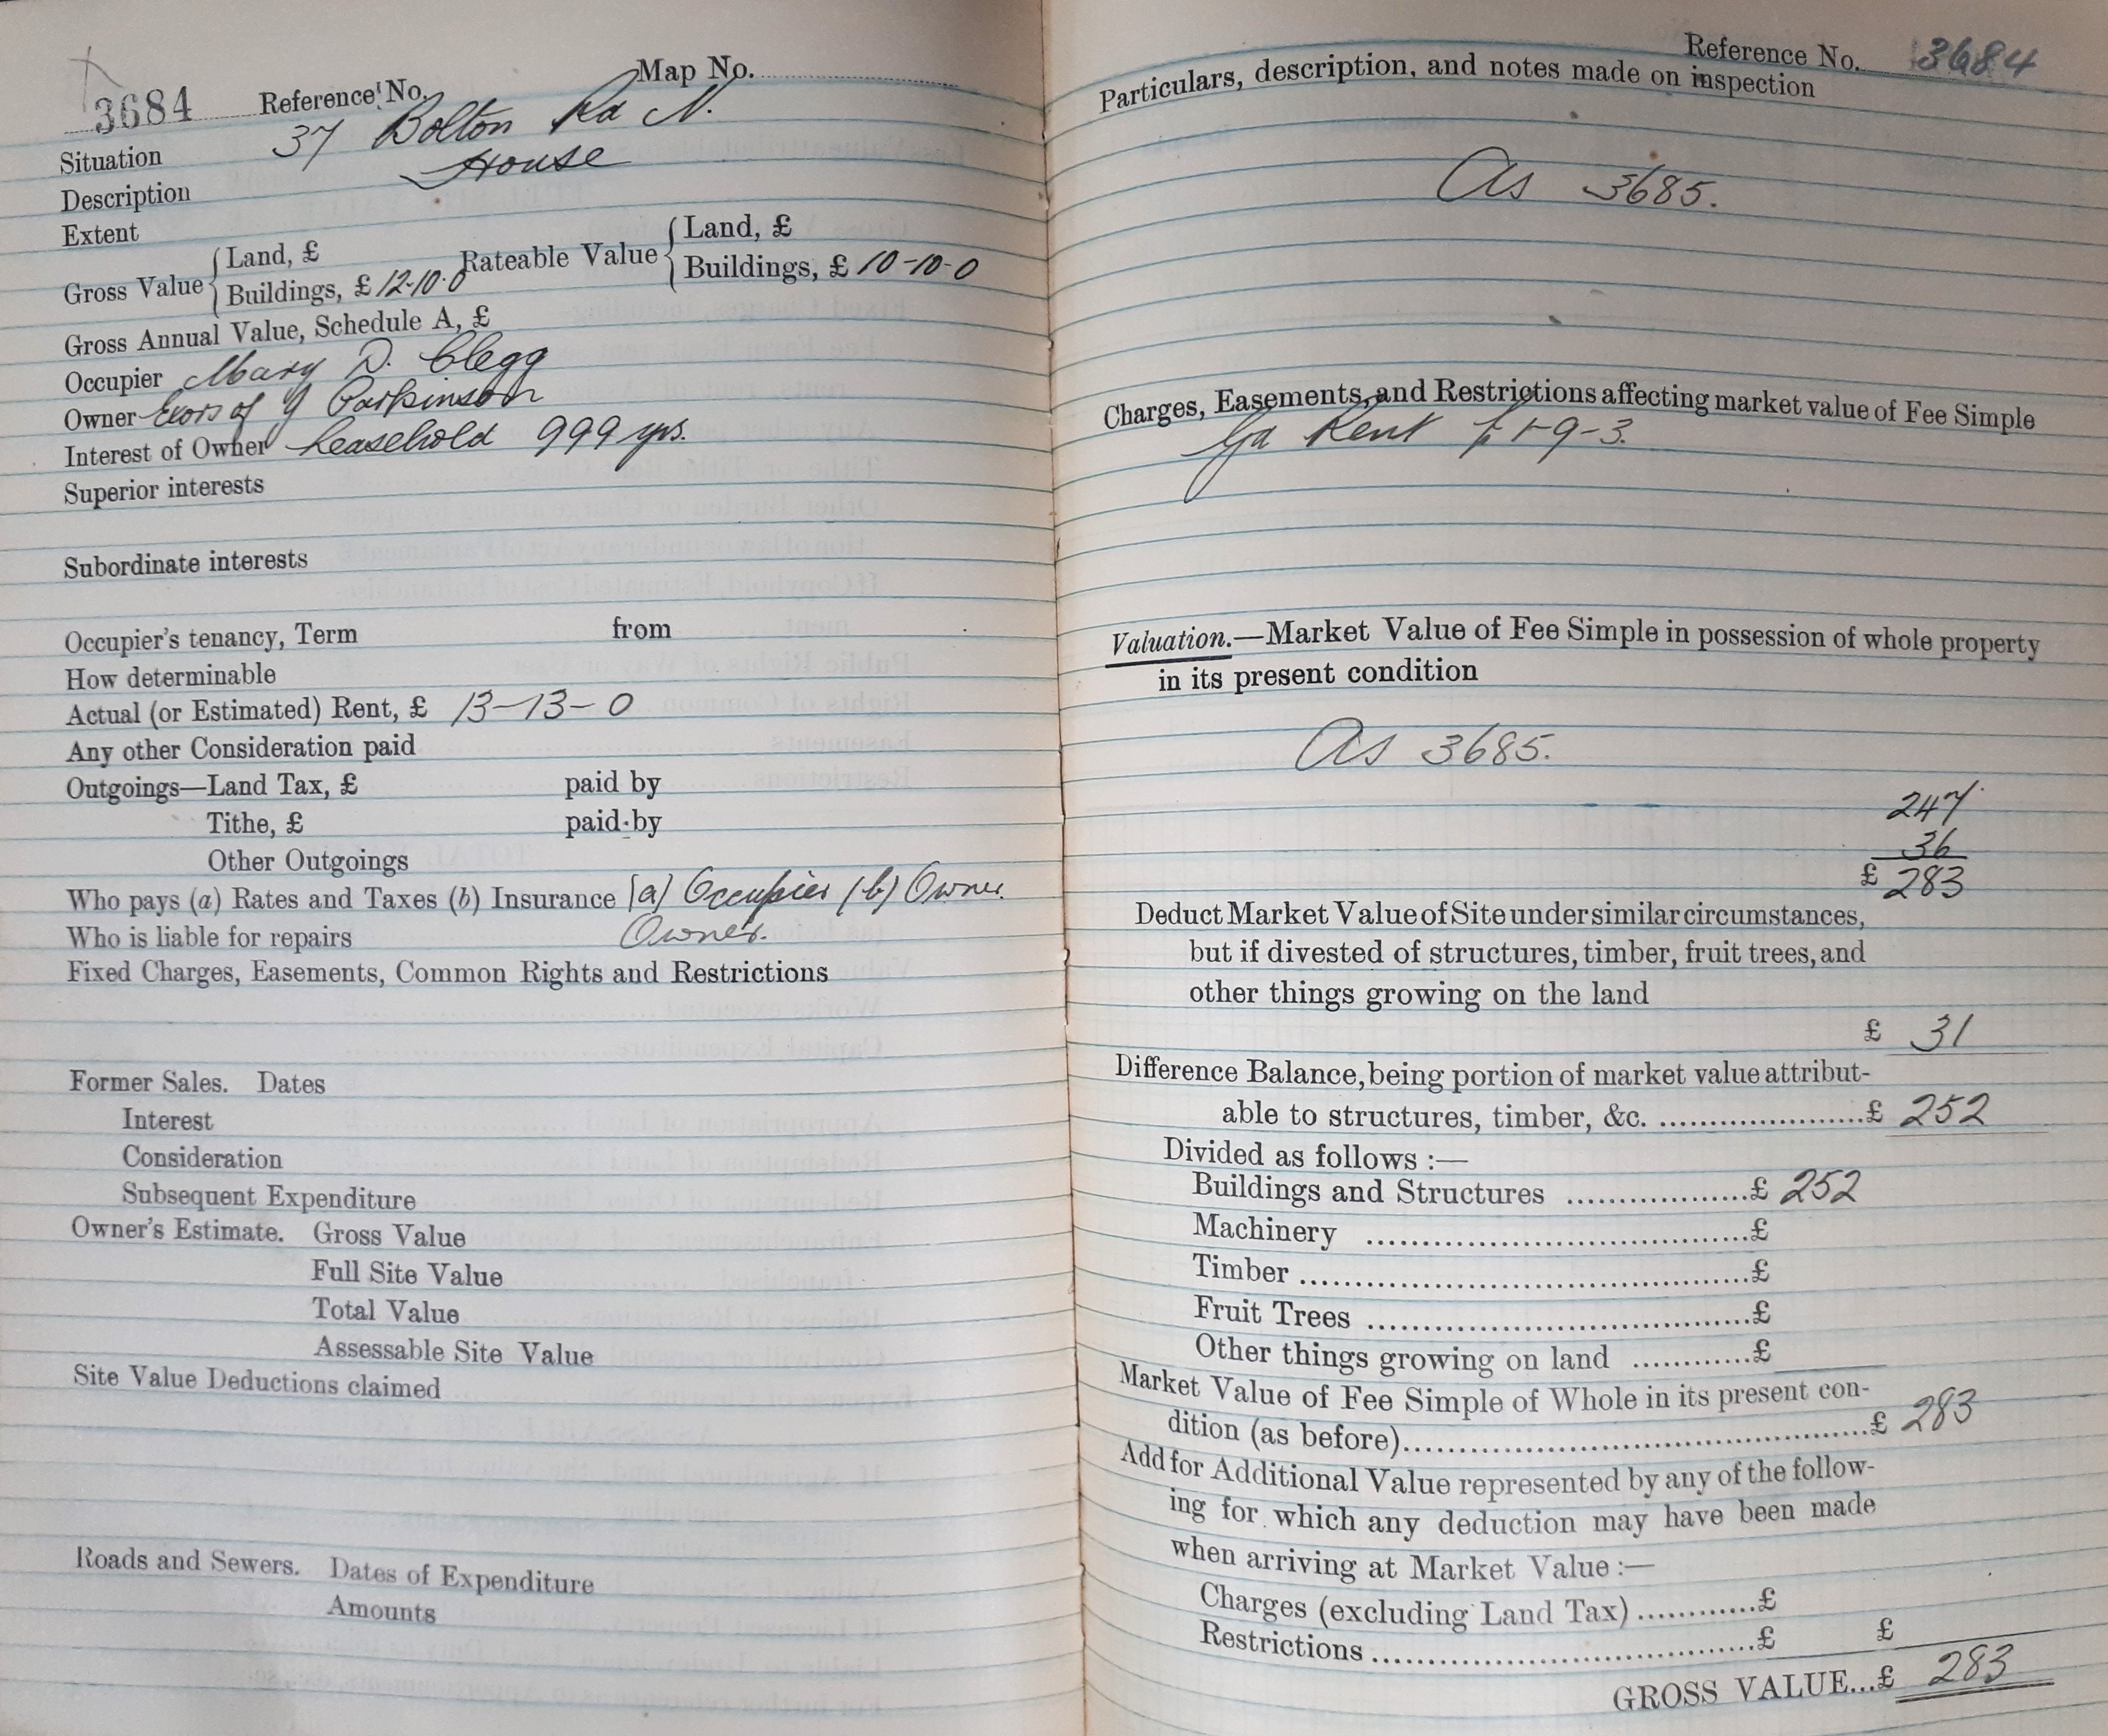 3684 Reference No. Map No.
Situation 37 Bolton Rd N.
Description House
Extent
Gross Value { Land, £ Rateable Value { Land, £
Buildings, £ 12-10-0 Buildings, £ 10-10-0
Gross Annual Value, Schedule A, £
Occupier Mary D. Clegg
Owner Exors of Y Parkinson
Interest of Owner Leasehold 999 yrs.
Superior interests
Subordinate interests
Occupier's tenancy, Term from
How determinable
Actual (or Estimated) Rent, £ 13-13-0
Any other Consideration paid
Outgoings—Land Tax, £ paid by
Tithe, £ paid by
Other Outgoings
Who pays (a) Rates and Taxes (b) Insurance (a) Occupier (b) Owner.
Who is liable for repairs Owner.
Fixed Charges, Easements, Common Rights and Restrictions
Former Sales. Dates
Interest
Consideration
Subsequent Expenditure
Owner's Estimate. Gross Value
Full Site Value
Total Value
Assessable Site Value
Site Value Deductions claimed
Roads and Sewers. Dates of Expenditure
Amounts
Reference No. 3684
Particulars, description, and notes made on inspection
As 3685.
Charges, Easements, and Restrictions affecting market value of Fee Simple
Gd Rent £1-9-3.
Valuation.—Market Value of Fee Simple in possession of whole property
in its present condition
As 3685.
247
36
£ 283
Deduct Market Value of Site under similar circumstances,
but if divested of structures, timber, fruit trees, and
other things growing on the land
£ 31
Difference Balance, being portion of market value attribut-
able to structures, timber, &c. ......................£ 252
Divided as follows :—
Buildings and Structures ..................£ 252
Machinery ......................................£
Timber .............................................£
Fruit Trees ......................................£
Other things growing on land ............£
Market Value of Fee Simple of Whole in its present con-
dition (as before)..............................................£ 283
Add for Additional Value represented by any of the follow-
ing for which any deduction may have been made
when arriving at Market Value :—
Charges (excluding Land Tax) ............£
Restrictions ......................................£ £
GROSS VALUE...£ 283